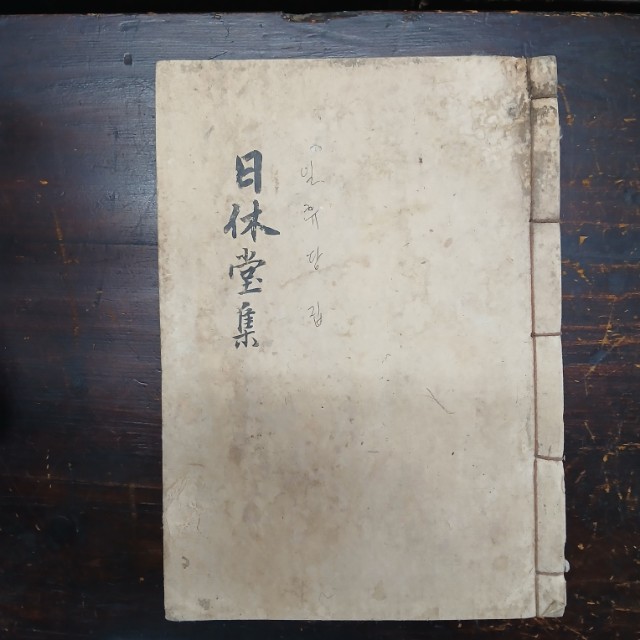 일휴당집
日休堂集